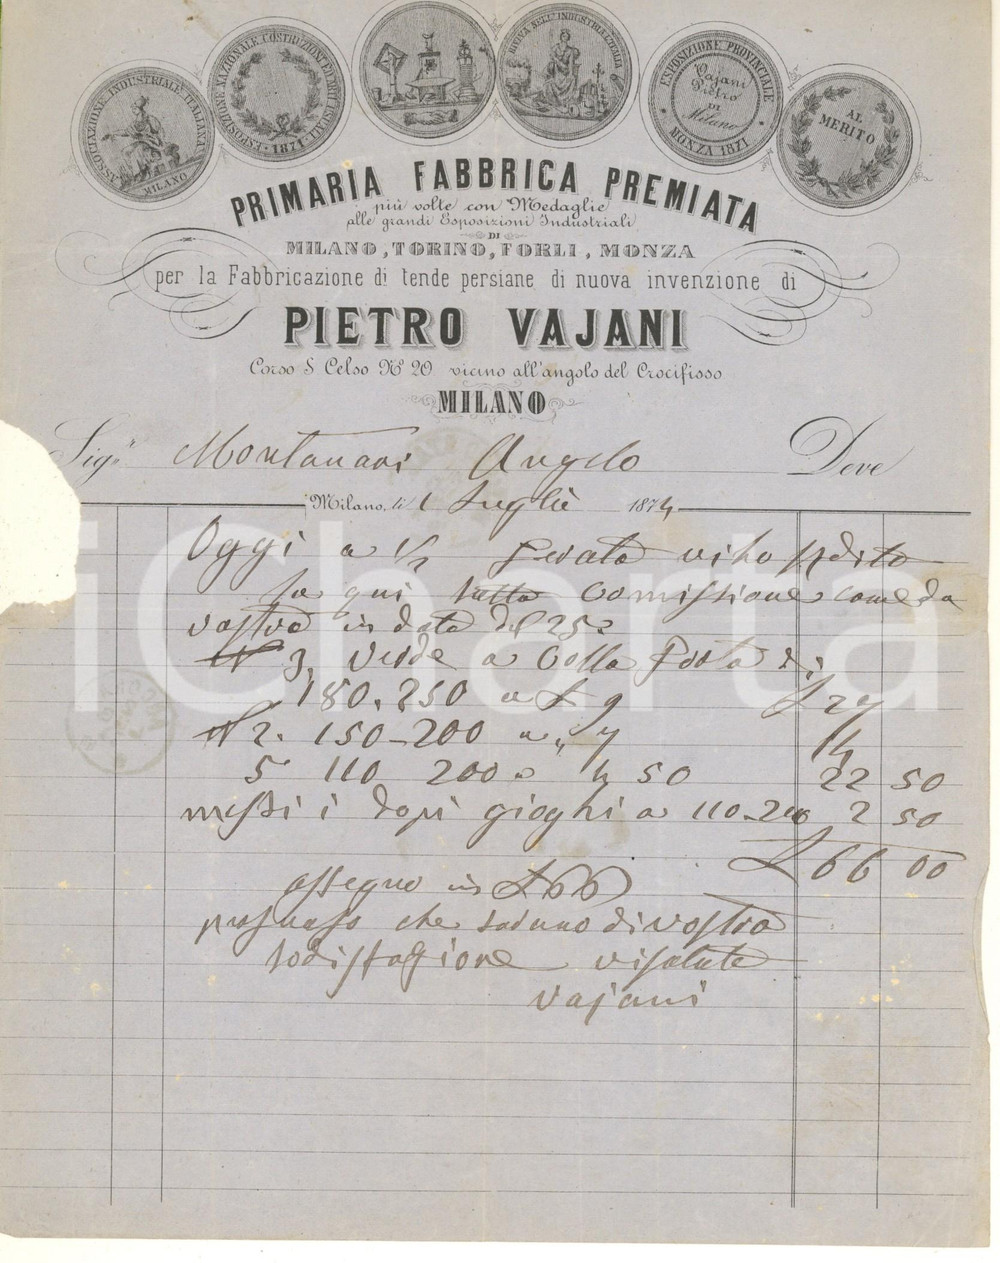 ASSOCIAZIONE INDUSTRIALE ITALIANA
MILANO
ESPOSIZIONE NAZIONALE
1871
ESPOSIZIONE PROVINCIALE
Vajani
Pietro
di
Milano
MONZA 1871
AL
MERITO
PRIMARIA FABBRICA PREMIATA
più volte con Medaglie
alle grandi Esposizioni Industriali
DI
MILANO, TORINO, FORLI, MONZA
per la Fabbricazione di tende persiane di nuova invenzione di
PIETRO VAJANI
Corso S Celso No 20 vicino all'angolo del Crocifisso
MILANO
Sigr Montanari Angelo Deve
Milano, li 1 Luglio 1874
Oggi a 1/2 vi ho spedito
qui tutta Comissione come da
vostra in data del 25
No 3 verde a £
180.250 a £ 9 27
No 2. 150-200 a " 7 14
5 110 200 a 4 50 22 50
messi i gioghi a 110-200 2 50
£ 66 00
assegno in £ 66
che saranno di vostra
sodisfagione vi salute
Vajani
iCharta